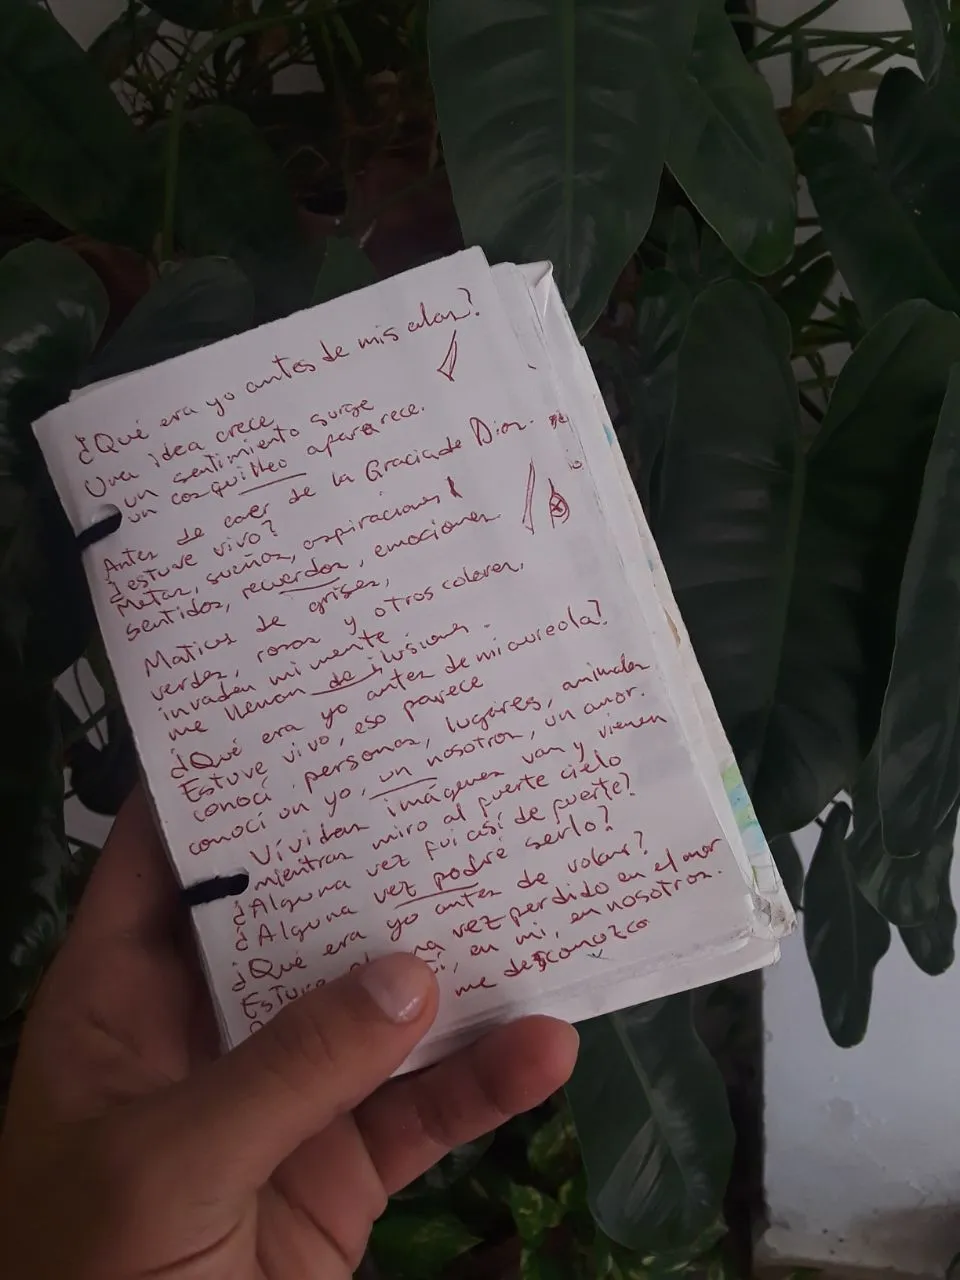 ¿Qué era yo antes de mis alas?
Una idea crece
un sentimiento surge
un cosquilleo aparece.
Antes de caer de la Gracia de Dios.
¿estuve vivo?
Metas, sueños, aspiraciones
sentidos, recuerdos, emociones.
Matices de grises,
verdes, rosas y otros colores,
invaden mi mente
me llenan de ilusiones.
¿Qué era yo antes de mi aureola?
Estuve vivo, eso parece
conocí personas, lugares, animales
conocí un yo, un nosotros, un amor.
Vívidas imágenes van y vienen
mientras miro al fuerte cielo
¿Alguna vez fui así de fuerte?
¿Alguna vez podre serlo?
¿Qué era yo antes de volar?
Estuve vez perdido en el mar
en mi, en nosotros.
me desconozco